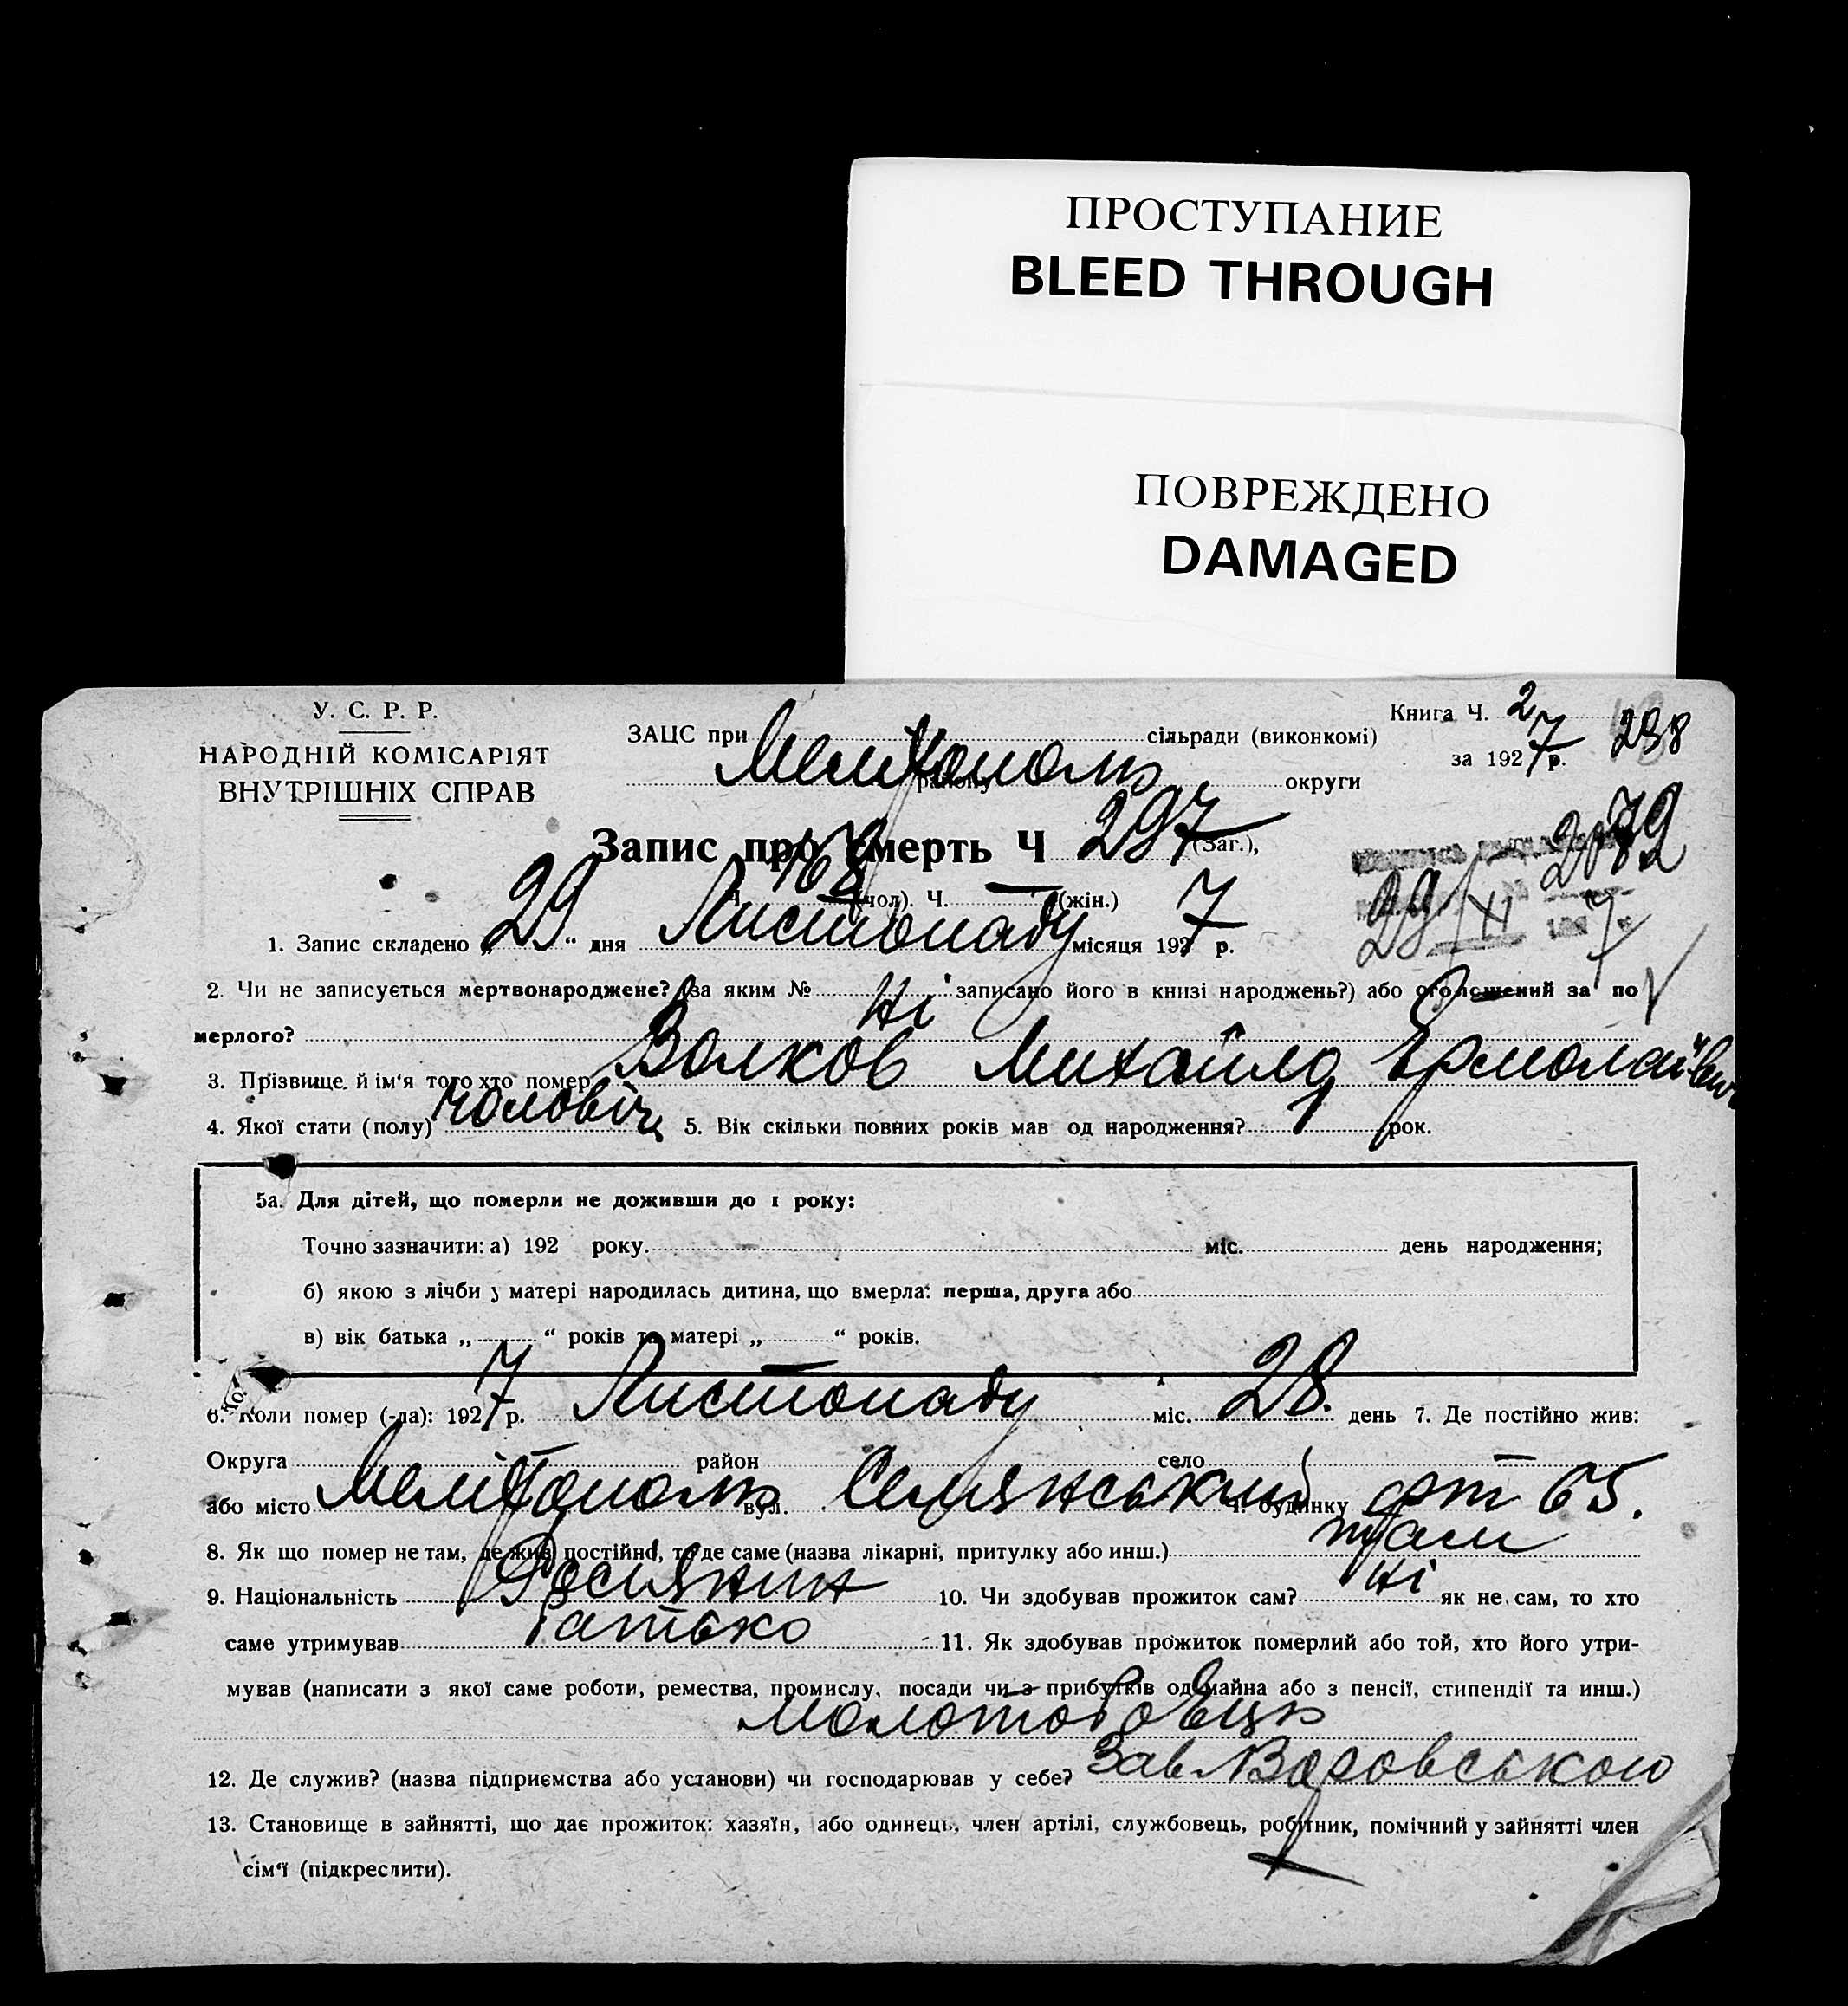 ПРОСТУПАНИЕ
BLEED THROUGH
ПОВРЕЖДЕНО
DAMAGED
У. С. Р. Р.
НАРОДНІЙ КОМІСАРІЯТ
ВНУТРІШНІХ СПРАВ
Книга Ч. 2
за 1927 р. 238
ЗАЦС при Мелітополь сільради (виконкомі)
району округи
Запис про смерть Ч 297 (Заг.),
168 (чол). Ч. — (жін.)
2072
29/XI 7
1. Запис складено „29“ дня Листопаду місяця 1927 р.
2. Чи не записується мертвонароджене? (за яким № Ні записано його в книзі народжень?) або оголошений за по
мерлого?
3. Прізвище й ім'я того хто помер Волков Михайло Ермолаїевич
4. Якої стати (полу) чоловіч 5. Вік скільки повних років мав од народження? 1 рок.
5а. Для дітей, що померли не доживши до 1 року:
Точно зазначити: а) 192 року. міс. день народження;
б) якою з лічби у матері народилась дитина, що вмерла: перша, друга або
в) вік батька „ “ років та матері „ “ років.
6. Коли помер (-ла): 1927 р. Листопаду міс. 28. день 7. Де постійно жив:
Округа район село
або місто Мелітополь вул. Ч. будинку 65.
8. Як що помер не там, де жив постійно, то де саме (назва лікарні, притулку або инш.) там
9. Національність Росіянин 10. Чи здобував прожиток сам? Ні як не сам, то хто
саме утримував Батько 11. Як здобував прожиток померлий або той, хто його утри-
мував (написати з якої саме роботи, ремества, промислу, посади чи з прибутків од майна або з пенсії, стипендії та инш.)
Молотобоєць
12. Де служив? (назва підприємства або установи) чи господарював у себе? Зав. Воровського
13. Становище в зайнятті, що дає прожиток: хазяїн, або одинець, член артілі, службовець, робітник, помічний у зайнятті член
сім'ї (підкреслити).